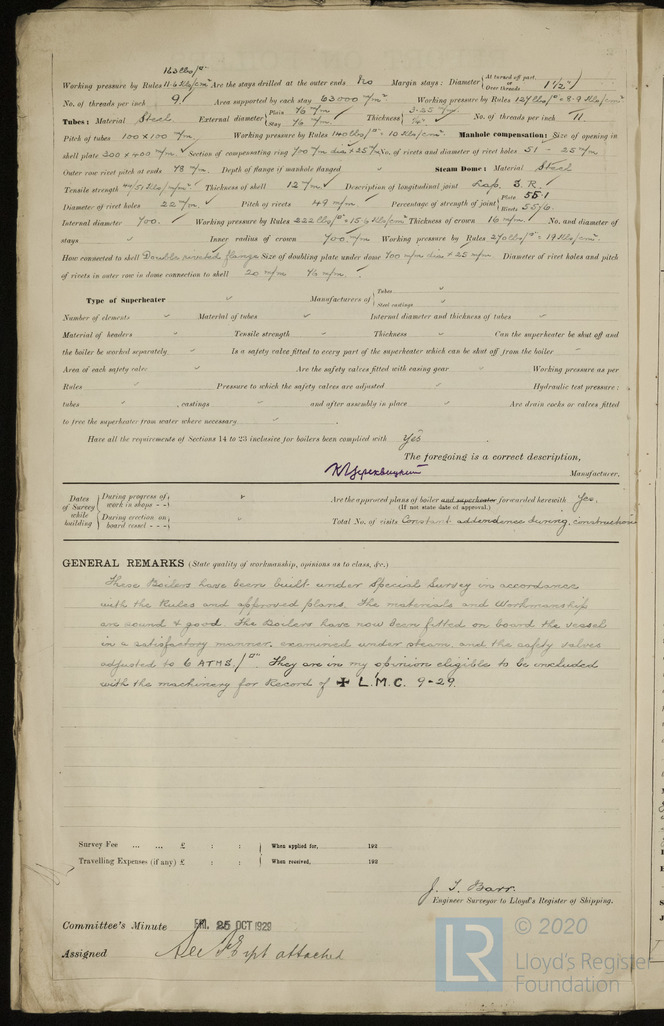 163 lbs/□"
Working pressure by Rules 11.6 Kilo/cm² Are the stays drilled at the outer ends No Margin stays: Diameter {At turned off part, or Over threads 1½"
No. of threads per inch 9 Area supported by each stay 63000 m/m². Working pressure by Rules 127 lbs/□" = 8.9 Kilo/cm²
Tubes: Material Steel External diameter {Plain 76 m/m. Stay 76 m/m. Thickness {3.25 m/m. No. of threads per inch 11
Pitch of tubes 100 x 100 m/m Working pressure by Rules 140 lbs/□" = 10 Kilo/cm². Manhole compensation: Size of opening in
shell plate 300 x 400 m/m. Section of compensating ring 700 m/m dia x 25 m/m No. of rivets and diameter of rivet holes 51 - 25 m/m
Outer row rivet pitch at ends 78 m/m. Depth of flange if manhole flanged Steam Dome: Material Steel
Tensile strength 44/51 Kilo/m/m². Thickness of shell 12 m/m Description of longitudinal joint Lap. D. R.
Diameter of rivet holes 22 m/m. Pitch of rivets 49 m/m Percentage of strength of joint {Plate 55.1 Rivets 55.6
Internal diameter 700. Working pressure by Rules 222 lbs/□" = 15.6 Kilo/cm² Thickness of crown 16 m/m No. and diameter of
stays Inner radius of crown 700 m/m Working pressure by Rules 270 lbs/□" = 19 Kilo/cm².
How connected to shell Double riveted flange Size of doubling plate under dome 700 m/m dia x 25 m/m. Diameter of rivet holes and pitch
of rivets in outer row in dome connection to shell 20 m/m 76 m/m.
Type of Superheater Manufacturers of {Tubes Steel castings
Number of elements Material of tubes Internal diameter and thickness of tubes
Material of headers Tensile strength Thickness Can the superheater be shut off and
the boiler be worked separately Is a safety valve fitted to every part of the superheater which can be shut off from the boiler
Area of each safety valve Are the safety valves fitted with easing gear Working pressure as per
Rules Pressure to which the safety valves are adjusted Hydraulic test pressure:
tubes , castings and after assembly in place Are drain cocks or valves fitted
to free the superheater from water where necessary
Have all the requirements of Sections 14 to 23 inclusive for boilers been complied with Yes
The foregoing is a correct description,
Manufacturer.
Dates of Survey while building {During progress of work in shops - - Are the approved plans of boiler and superheater forwarded herewith Yes.
(If not state date of approval.)
{During erection on board vessel - - - Total No. of visits Constant addendance during, construction
GENERAL REMARKS (State quality of workmanship, opinions as to class, &c.)
These Boilers have been built under Special Survey in accordance
with the Rules and approved plans. The materials and Workmanship
are sound & good. The Boilers have now been fitted on board the vessel
in a satisfactory manner, examined under steam, and the safety valves
adjusted to 6 ATMS./□". They are in my opinion eligible to be included
with the machinery for Record of ✠ L.M.C. 9-29.
Survey Fee ... ... £ : : } When applied for, 192
Travelling Expenses (if any) £ : : } When received, 192
J. T. Barr.
Engineer Surveyor to Lloyd's Register of Shipping.
Committee's Minute FRI. 25 OCT 1929
Assigned See Rpt attached
LR © 2020
Lloyd's Register
Foundation